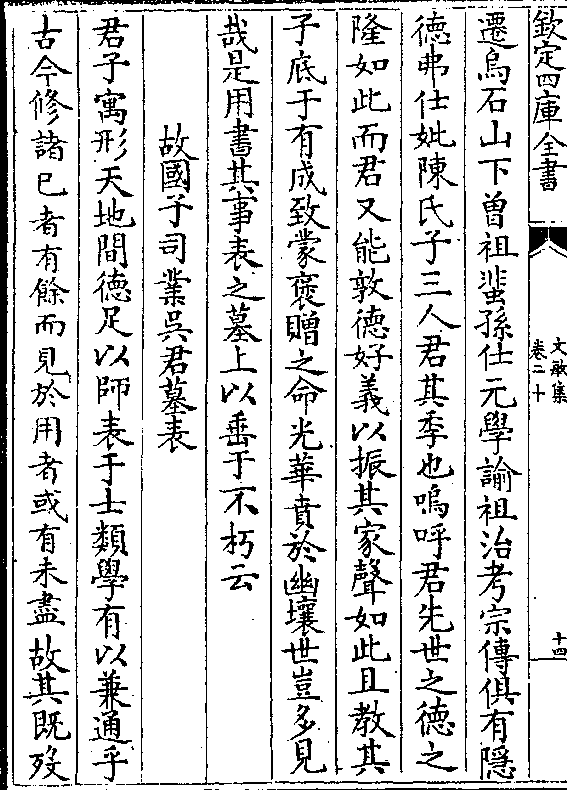 欽定四庫全書
文敏集
卷二十
十四
遷烏石山下曽祖蜚孫仕元學諭祖治考宗傳俱有隱
德弗仕妣陳氏子三人君其季也嗚呼君先世之德之
隆如此而君又能敦德好義以振其家聲如此且教其
子底于有成致蒙褒贈之命光華賁於幽壤世豈多見
哉是用書其事表之墓上以垂于不朽云
故國子司業吳君墓表
君子寓形天地間德足以師表于士類學有以兼通乎
古今修諸已者有餘而見於用者或有未盡故其既歿